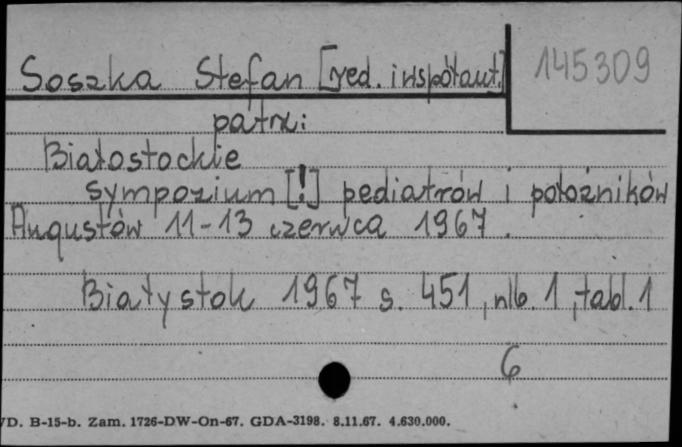 Soszka Stefan [red. i współaut.] 145309
patrz:
Białostockie
sympozium [!] pediatrów i położników
Augustów 11-13 czerwca 1967.
Białystok 1967 s. 451, nlb. 1, tabl. 1
6
VD. B-15-b. Zam. 1726-DW-On-67. GDA-3198. 8.11.67. 4.630.000.